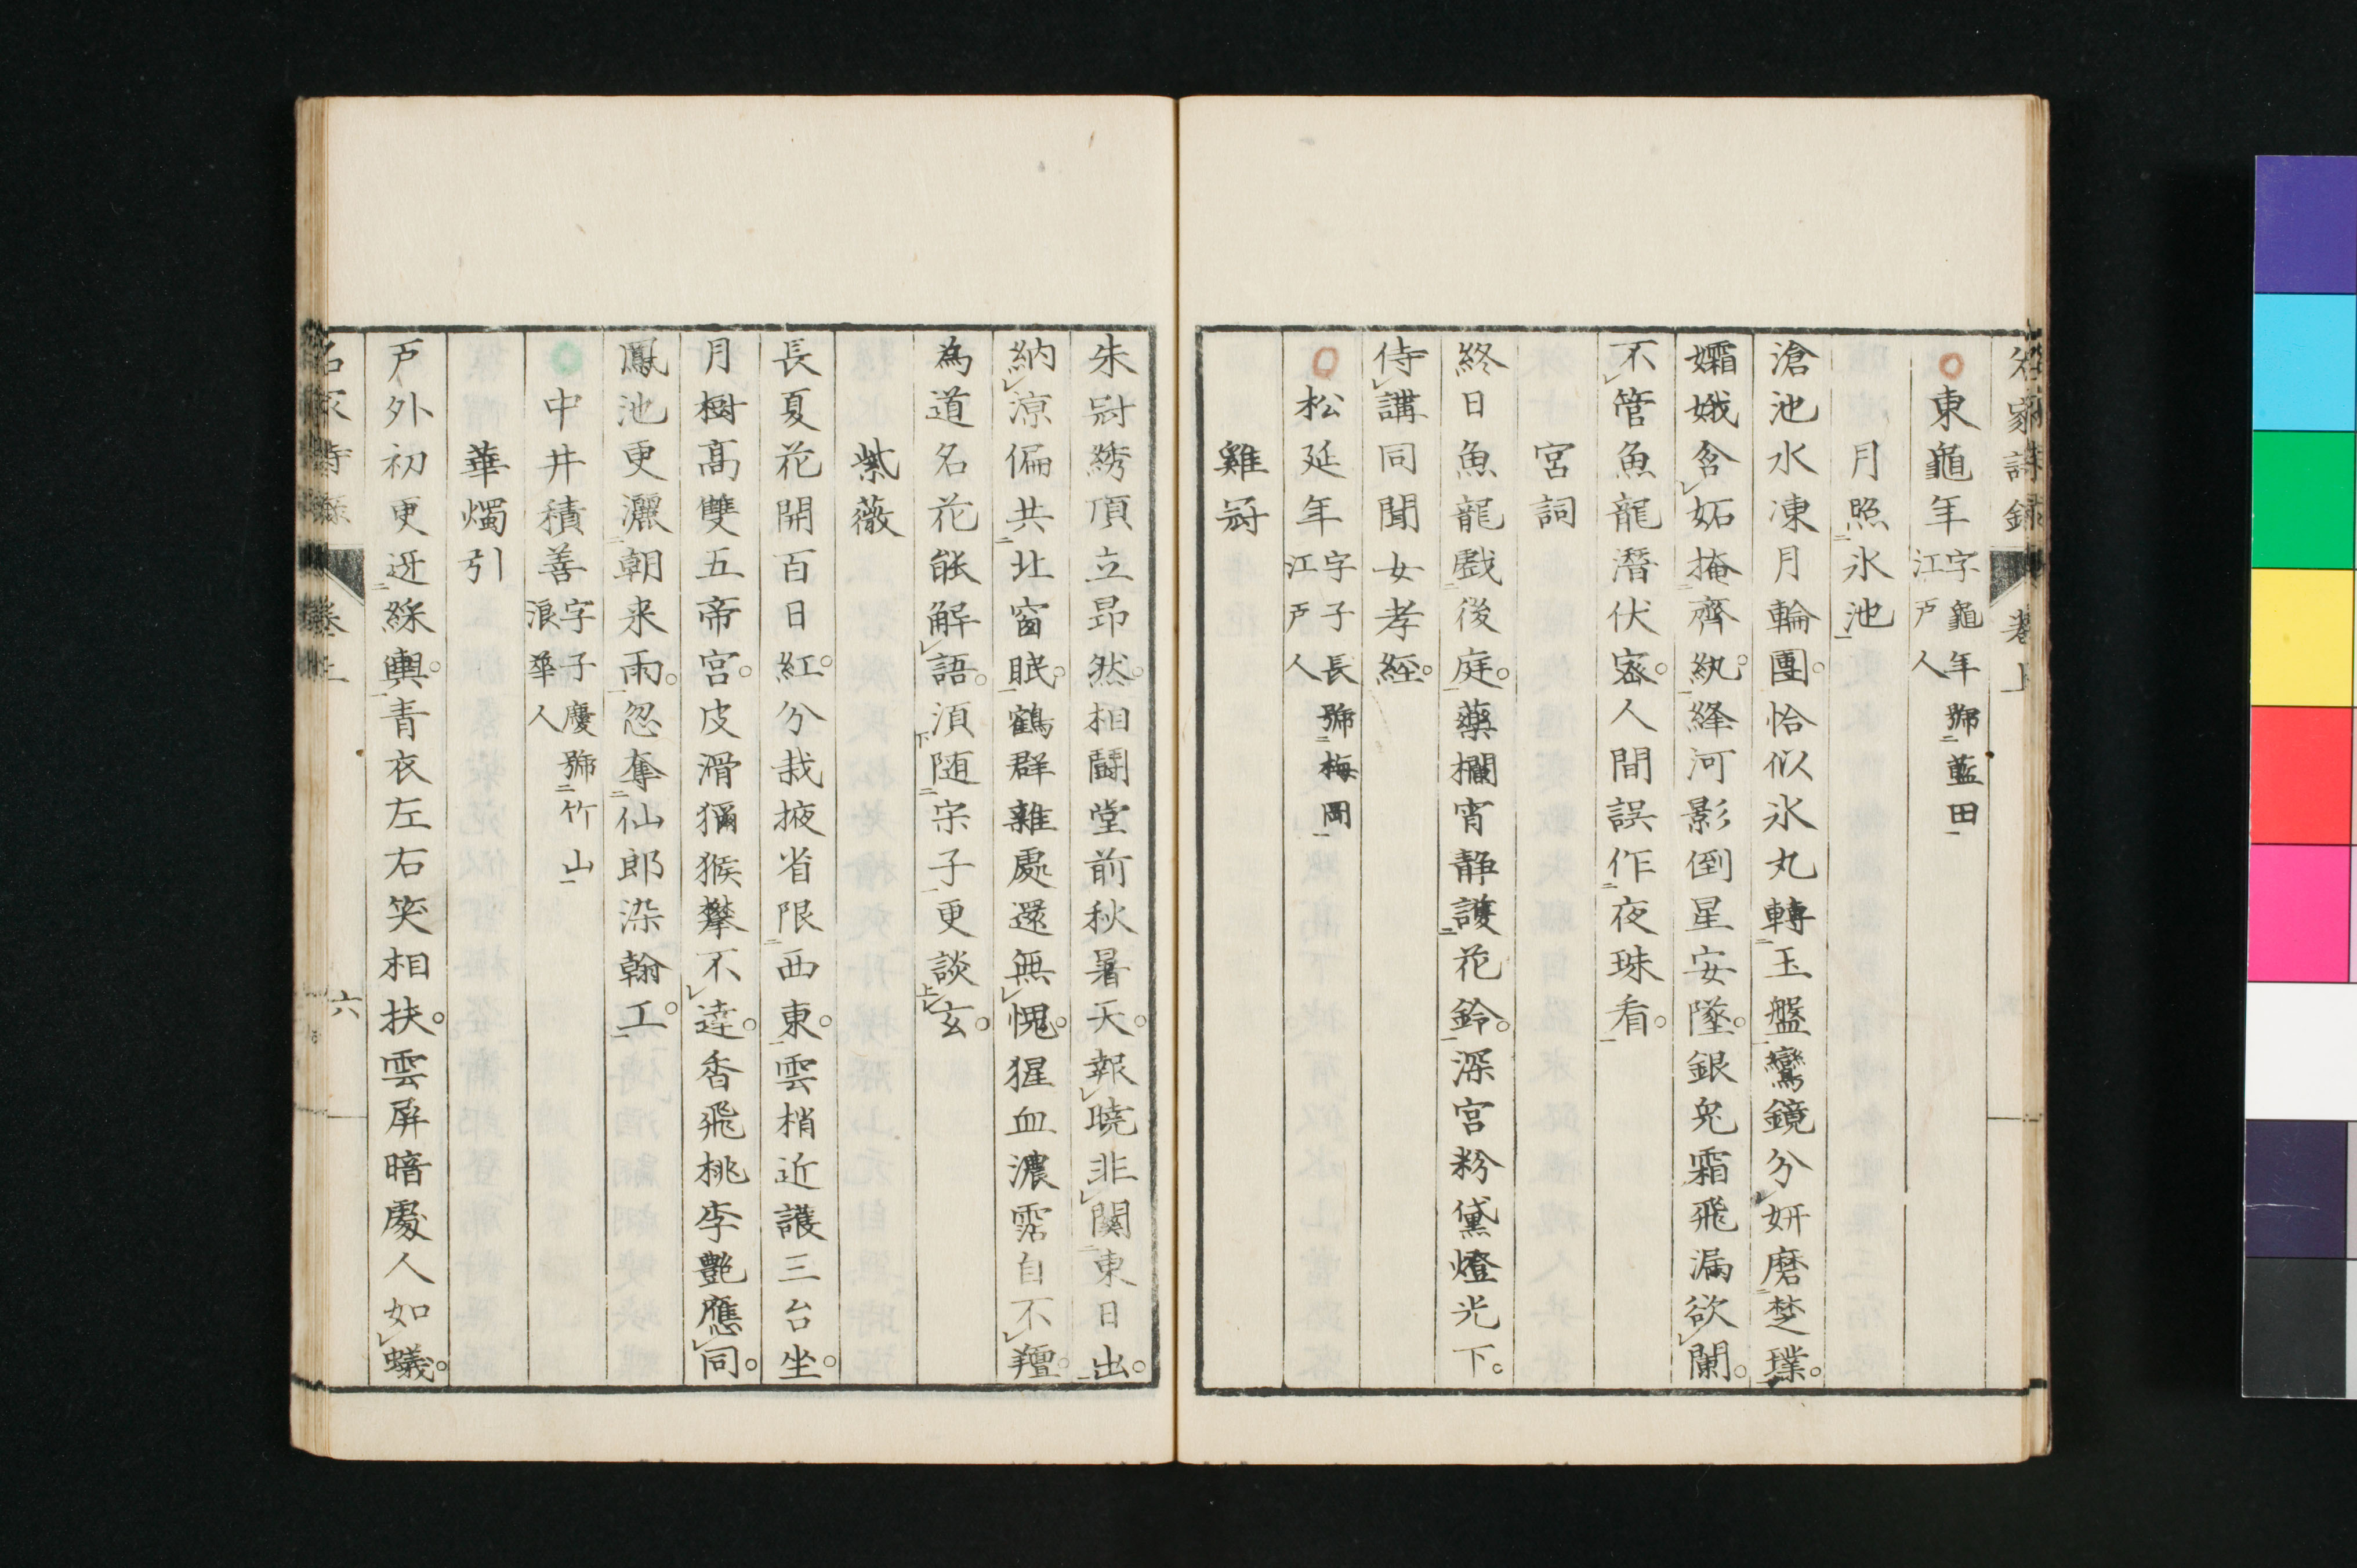 名家詩録 卷上
東龜年 字龜年號藍田江戸人
月照氷池
滄池水凍月輪團恰似氷丸轉玉盤鸞鏡分妍磨楚璞
孀娥含妬掩齊紈絳河影倒星安墜銀兔霜飛漏欲闌
不管魚龍潛伏密人間誤作夜珠看
宮詞
終日魚龍戲後庭藥欄宵静護花鈴深宮粉黛燈光下
侍講同聞女孝經
松延年 字子長號梅岡江戸人
雞冠
朱冠綉頂立昂然相鬪堂前秋暑天報曉非關東日出
納凉偏共北窗眠鶴群雜處還無愧猩血濃霑自不羶
為道名花能解語須随宋子更談玄
紫薇
長夏花開百日紅分栽掖省限西東雲梢近護三台坐
月樹高雙五帝宮皮滑獼猴攀不達香飛桃李艷應同
鳳池更灑朝来雨忽奪仙郎染翰工
中井積善 字子慶號竹山浪華人
華燭引
戸外初更迓綵輿青衣左右笑相扶雲屏暗處人如蟻
名家詩録 卷上 六